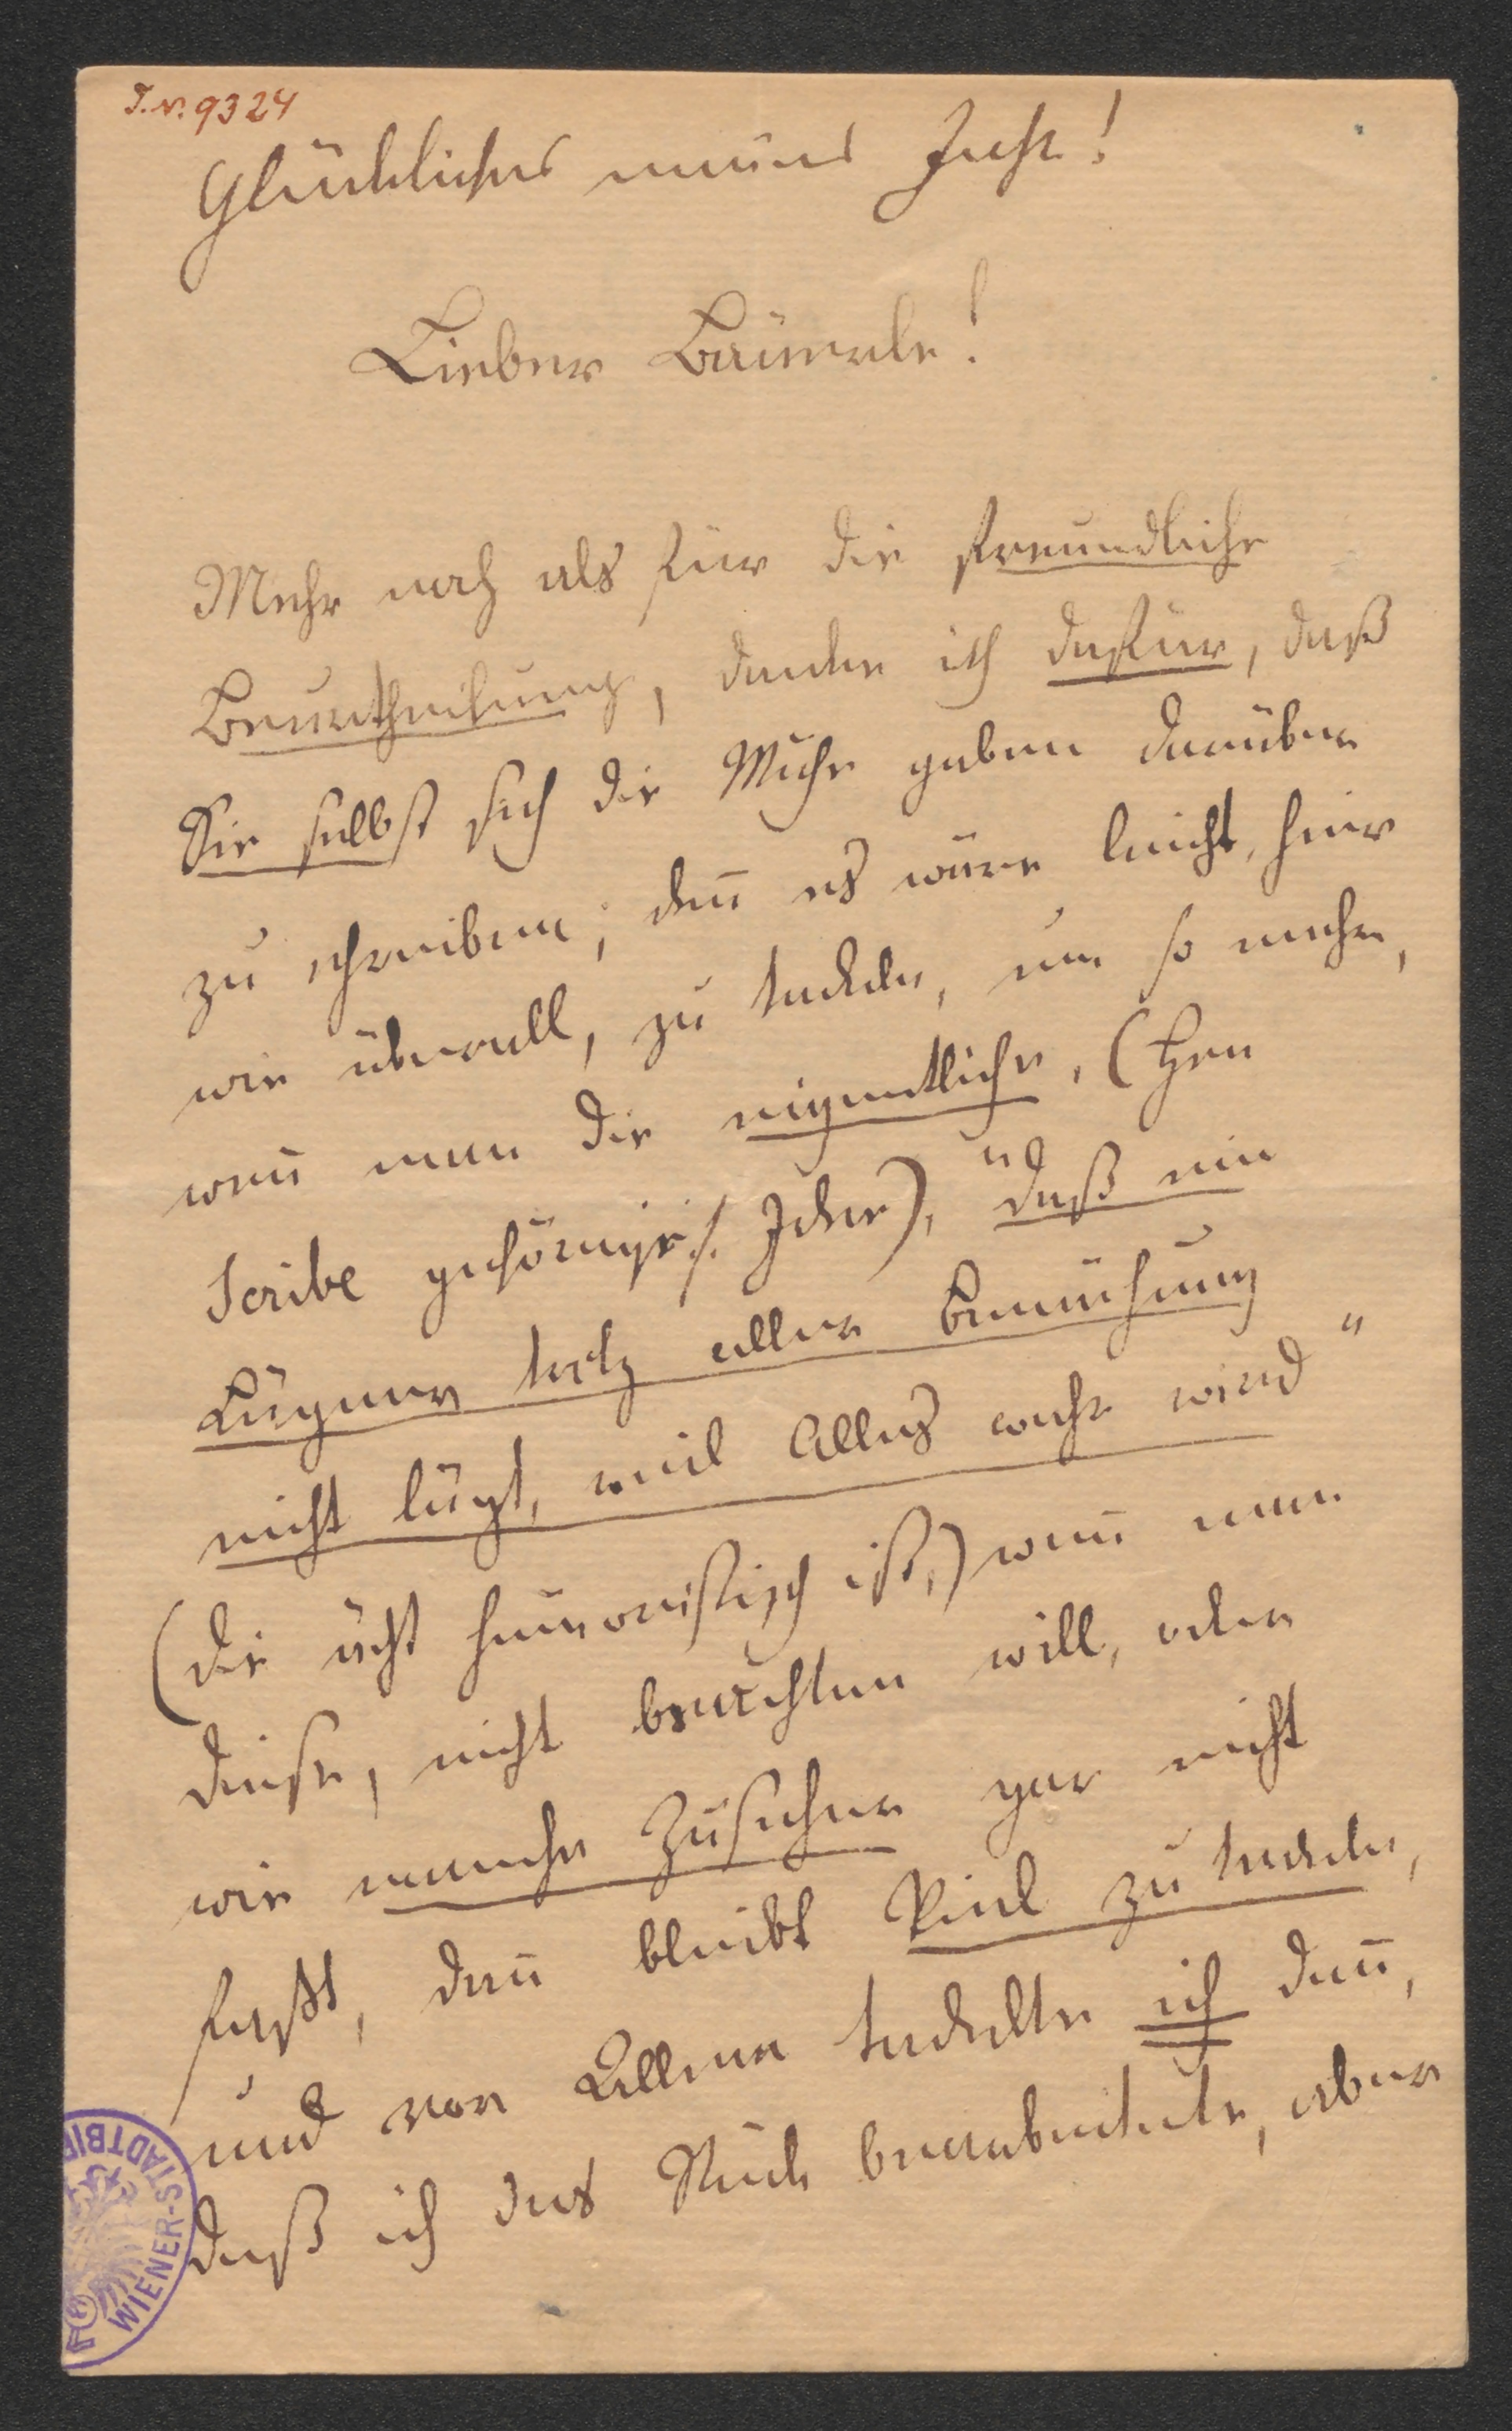 I.N. 9324
Glückliches neues Jahr!
Lieber Bäuerle!
Mehr noch als für die freundliche
Beurtheilung, danke ich dafür, daß
Sie selbst sich die Mühe gaben darüber
zu schreiben; deñ es wäre leicht, hier
wie überall, zu tadeln, um so mehr,
weñ man die eigentliche, (Hrn
Scribe gehörige Idee), „daß ein
Lügner trotz aller Bemühung
nicht lügt, weil Alles wahr wird“
(die ächt humoristisch ist,) weñ man
diese, nicht beachten will, oder
wie manche Zuseher gar nicht
faßt, dañ bleibt Viel zu tadeln,
und vor Allem tadelte ich dañ,
daß ich das Stück bearbeitete, aber
WIENER-STADTBI